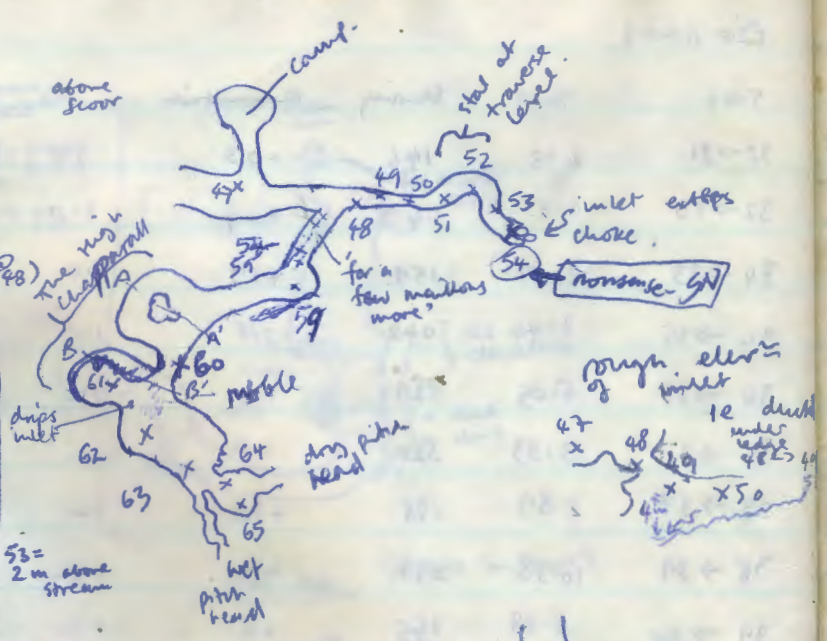 camp.
above
floor
stal at
traverse
level.
47
49
50
52
48
51
53
inlet enters
choke.
54
nonsense - SN
for a
few maillons
more
59
The High
Chapparall
A
A'
B
B'
60
61
rubble
drips
inlet
62
63
64
65
dry pitch
head
wet
pitch
head
53 =
2 m above
stream
rough elevn
of inlet
ie duck
under
ledge
48
47
48
49
50